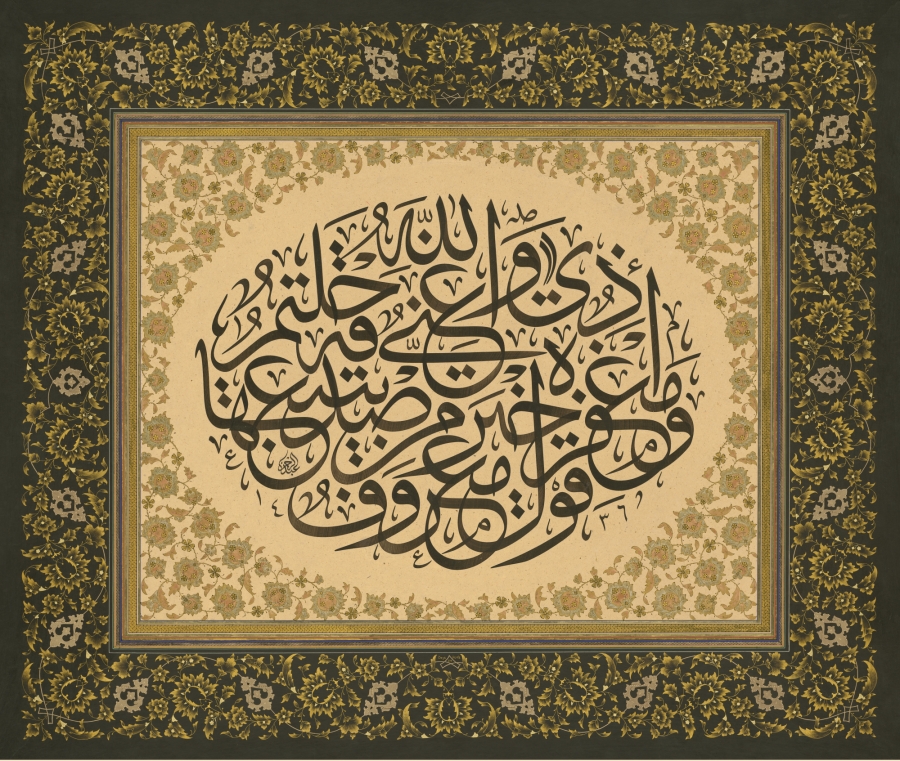 قَوْلٌ مَّعْرُوفٌ وَمَغْفِرَةٌ خَيْرٌ مِّن صَدَقَةٍ يَتْبَعُهَا أَذًى ۗ وَاللَّهُ غَنِيٌّ حَلِيمٌ
١٤٣٦